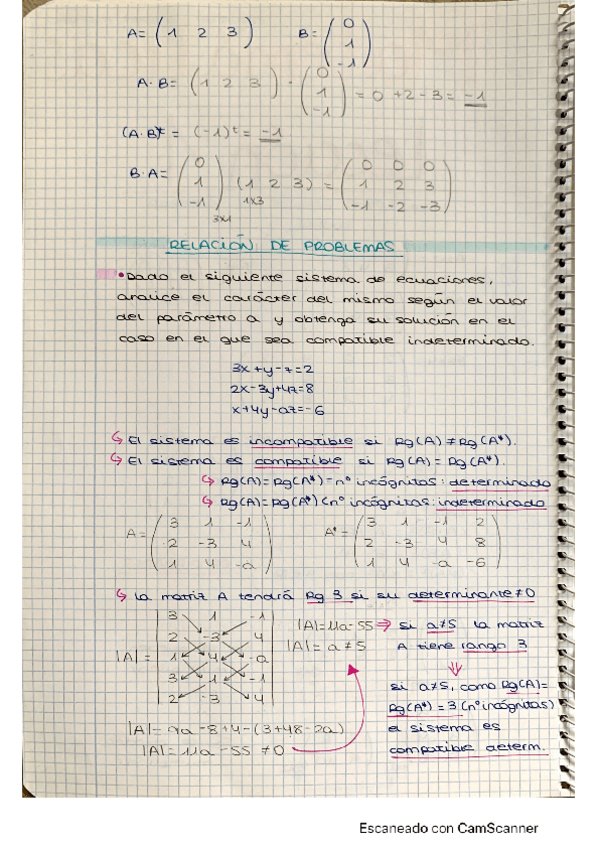 A = (1 2 3) B = (0 1 -1)
A·B = (1 2 3) · (0 1 -1) = 0 + 2 - 3 = -1
(A·B)ᵗ = (-1)ᵗ = -1
B·A = (0 1 -1) (1 2 3) = (0 0 0
1 2 3
-1 -2 -3)
3x1 1x3
RELACIÓN DE PROBLEMAS
• Dado el siguiente sistema de ecuaciones,
analice el carácter del mismo según el valor
del parámetro a y obtenga su solución en el
caso en el que sea compatible indeterminado.
3x+y-z=2
2x-3y+4z=8
x+4y-az=-6
↳ El sistema es incompatible si Rg(A) ≠ Rg(A*).
↳ El sistema es compatible si Rg(A) = Rg(A*).
↳ Rg(A) = Rg(A*) = nº incógnitas: determinado
↳ Rg(A) = Rg(A*) < nº incógnitas: indeterminado
A = (3 1 -1
2 -3 4
1 4 -a)
A* = (3 1 -1 2
2 -3 4 8
1 4 -a -6)
↳ La matriz A tendrá Rg 3 si su determinante ≠ 0
|A| =
3 1 -1
2 -3 4
1 4 -a
3 1 -1
2 -3 4
|A| = 9a - 8 + 4 - (3 + 48 - 2a)
|A| = 11a - 55 ≠ 0
|A| = 11a - 55 ⇒ si a≠5 la matriz
|A| = a ≠ 5 A tiene rango 3
⇓
si a≠5, como Rg(A) =
Rg(A*) = 3 (nº incógnitas)
el sistema es
compatible determ.
Escaneado con CamScanner